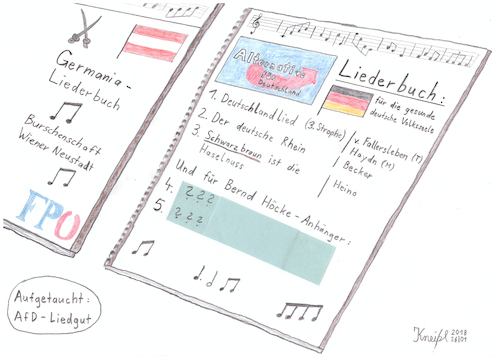 Germania-
Liederbuch
Burschenschaft
Wiener Neustadt
FPÖ
Alternative
für
Deutschland
Liederbuch:
für die gesunde
deutsche Volksseele
1. Deutschlandlied (3. Strophe)
v. Fallersleben (T)
Haydn (M)
2. Der deutsche Rhein
Becker
3. Schwarzbraun ist die
Haselnuss
Heino
Und für Bernd Höcke-Anhänger:
4. ? ? ?
5. ? ? ?
Aufgetaucht:
AfD-Liedgut
Kneipl 2018
26/01